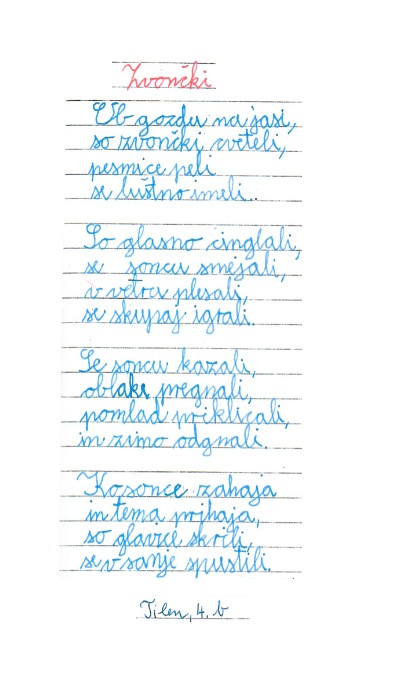 Zvončki
Ob gozdu na jasi,
so zvončki cveteli,
pesmice peli
se luštno imeli..
So glasno cinglali,
se soncu smejali,
v vetru plesali,
se skupaj igrali.
Se soncu kazali,
oblake pregnali,
pomlad priklicali,
in zimo odgnali.
Ko sonce zahaja
in tema prihaja,
so glavice skrili,
se v sanje spustili.
Tilen, 4. b